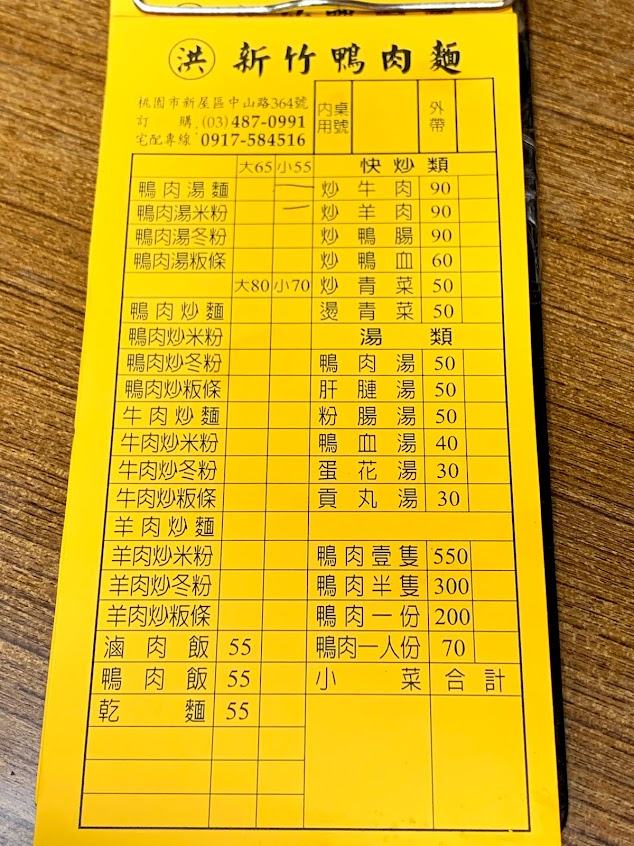 洪 新竹鴨肉麵
桃園市新屋區中山路364號
訂購.(03)487-0991
宅配專線 0917-584516
內用 桌號 外帶
大65 小55
鴨肉湯麵
鴨肉湯米粉
鴨肉湯冬粉
鴨肉湯粄條
大80 小70
鴨肉炒麵
鴨肉炒米粉
鴨肉炒冬粉
鴨肉炒粄條
牛肉炒麵
牛肉炒米粉
牛肉炒冬粉
牛肉炒粄條
羊肉炒麵
羊肉炒米粉
羊肉炒冬粉
羊肉炒粄條
滷肉飯 55
鴨肉飯 55
乾麵 55
快炒類
炒牛肉 90
炒羊肉 90
炒鴨腸 90
炒鴨血 60
炒青菜 50
燙青菜 50
湯類
鴨肉湯 50
肝腱湯 50
粉腸湯 50
鴨血湯 40
蛋花湯 30
貢丸湯 30
鴨肉壹隻 550
鴨肉半隻 300
鴨肉一份 200
鴨肉一人份 70
小菜 合計